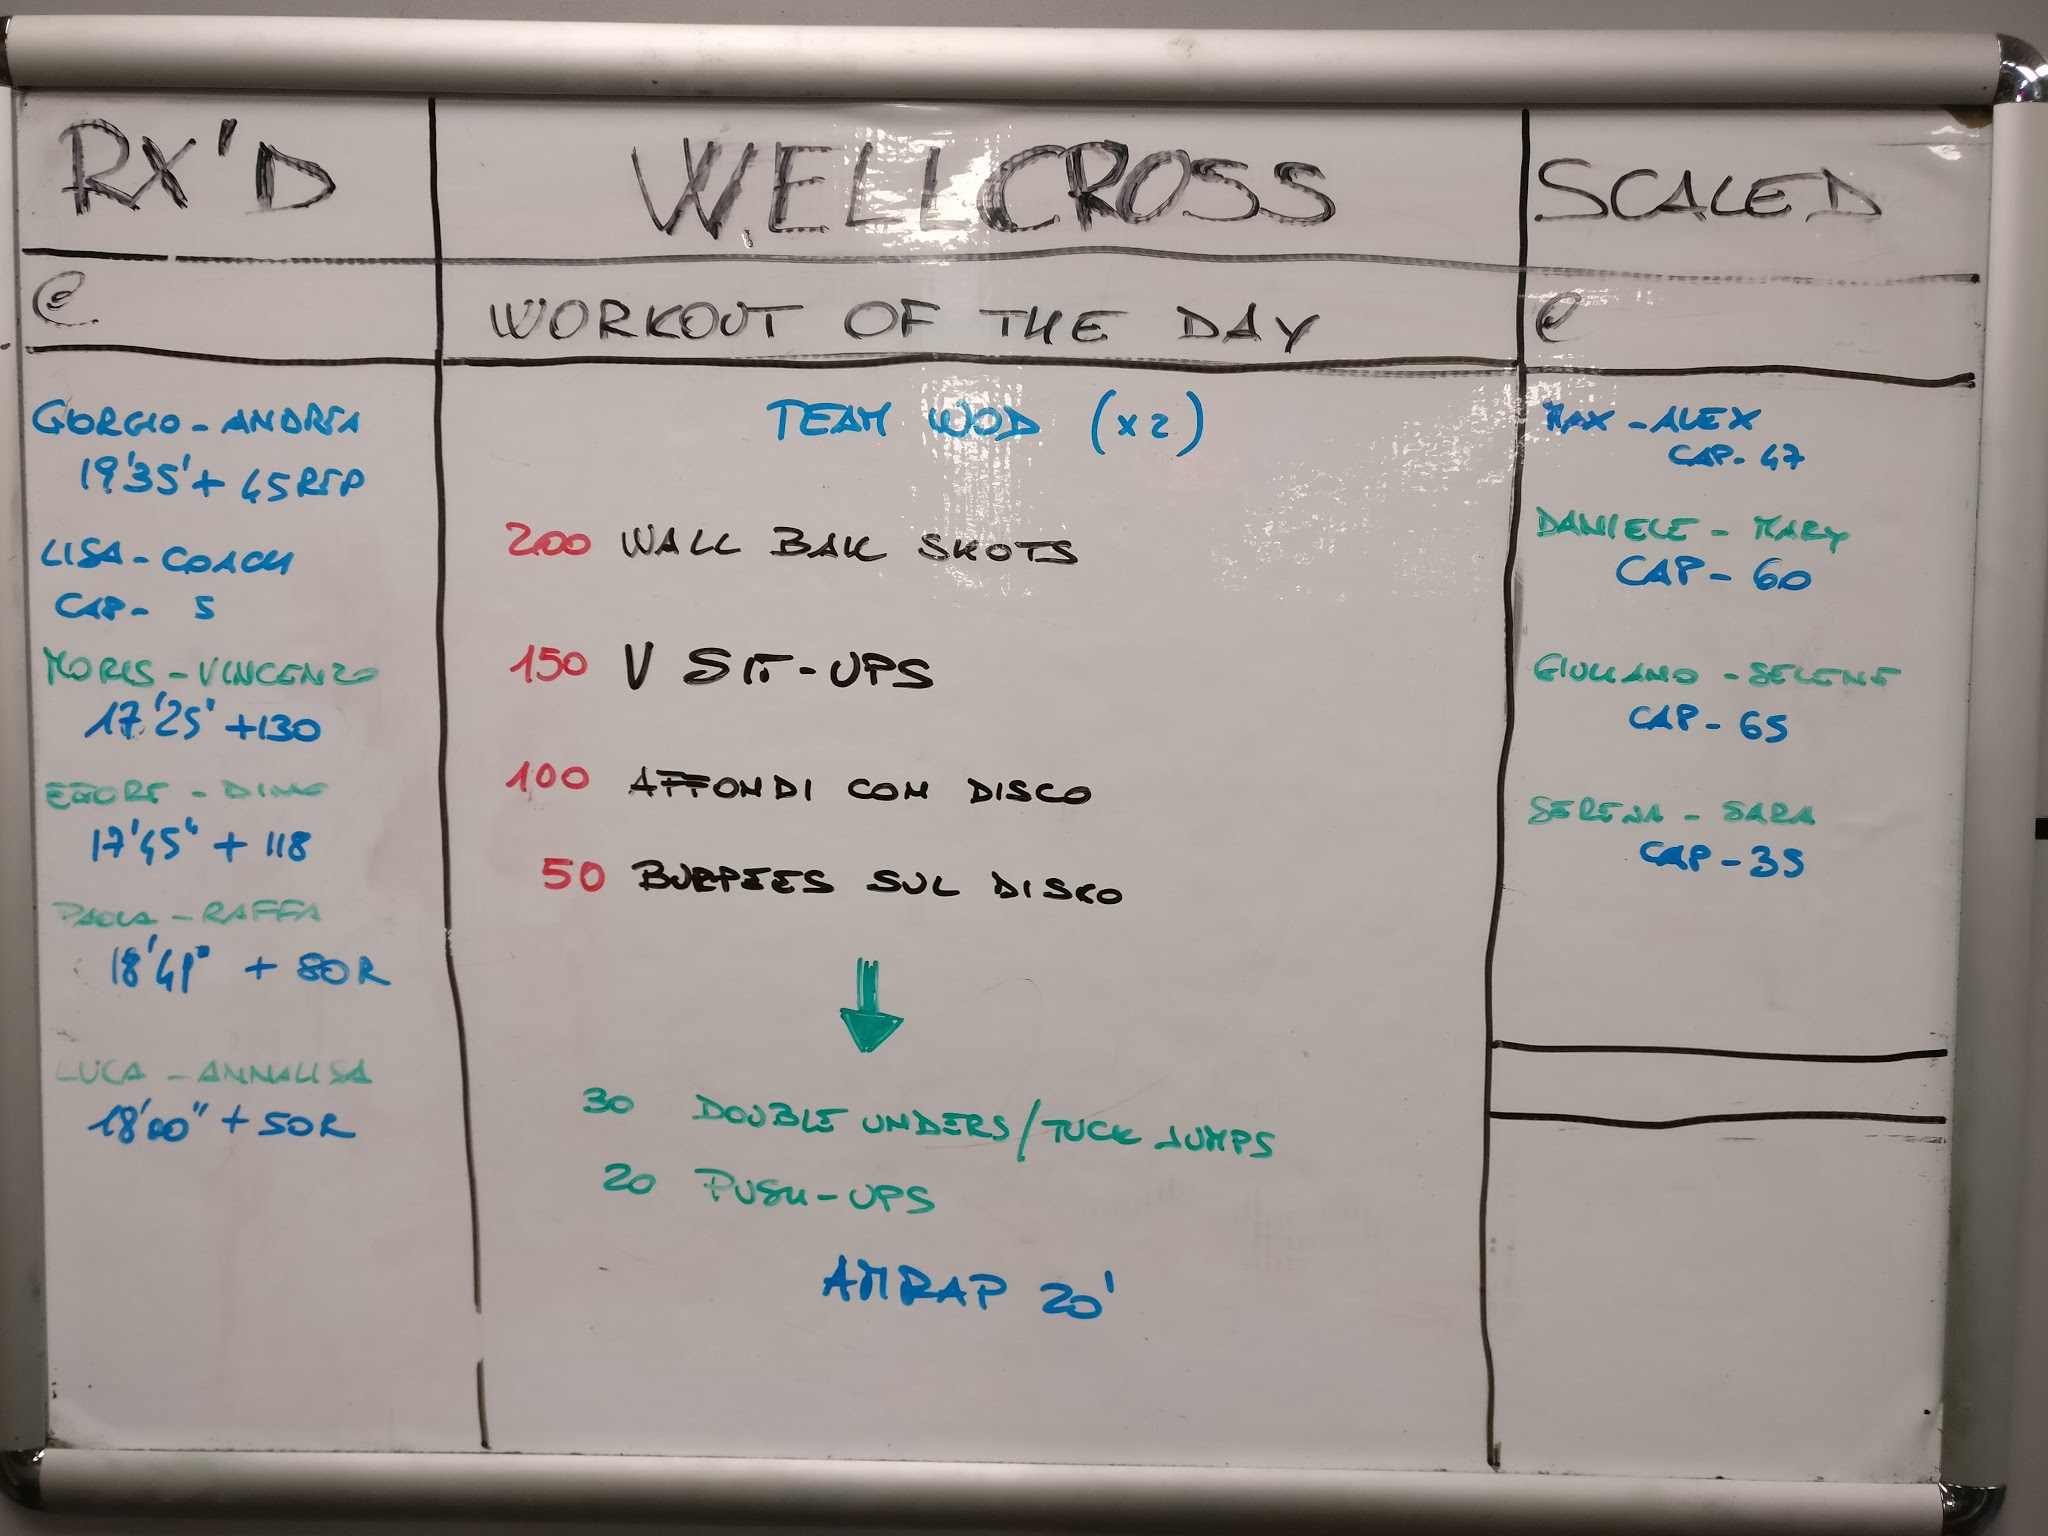 RX'D
WELLCROSS
SCALED
@
WORKOUT OF THE DAY
@
GIORGIO - ANDREA
19'35' + 45 REP
LISA - COACH
CAP - 5
MORIS - VINCENZO
17'25' +130
ETTORE - DINO
17'45" + 118
PAOLA - RAFFA
18'41" + 80R
LUCA - ANNALISA
18'00" + 50R
TEAM WOD (x2)
200 WALL BALL SHOTS
150 V SIT-UPS
100 AFFONDI CON DISCO
50 BURPEES SUL DISCO
30 DOUBLE UNDERS/TUCK JUMPS
20 PUSH-UPS
AMRAP 20'
MAX - ALEX
CAP - 47
DANIELE - MARY
CAP - 60
GIULIANO - SELENE
CAP - 65
SERENA - SARA
CAP - 35